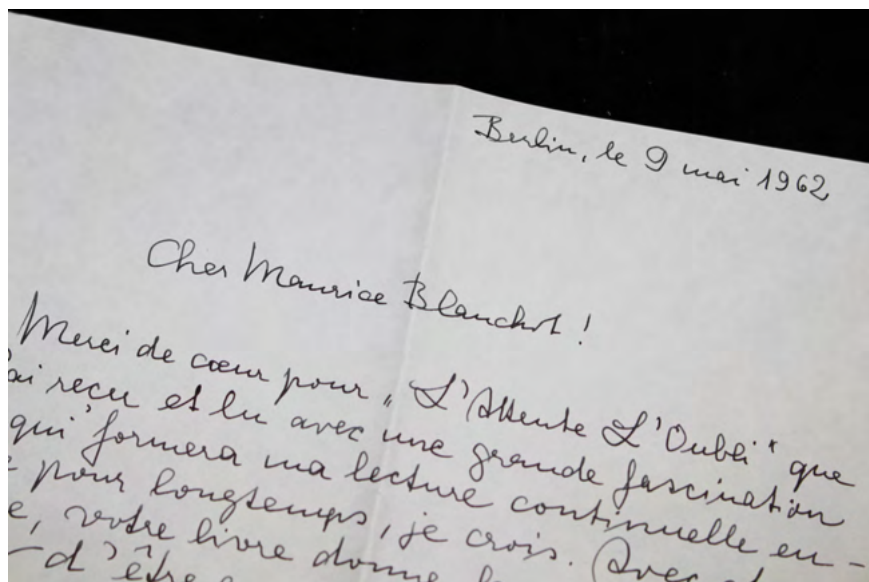 Berlin, le 9 mai 1962
Cher Maurice Blanchot !
Merci de cœur pour „L'Attente L'Oubli" que
ai reçu et lu avec une grande fascination
qui formera ma lecture continuelle en-
pour longtemps, je crois. Avec
e, votre livre donne
— d'être